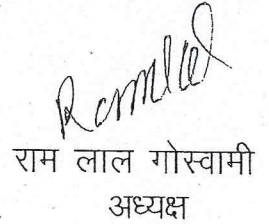 Ramlal
राम लाल गोस्वामी
अध्यक्ष